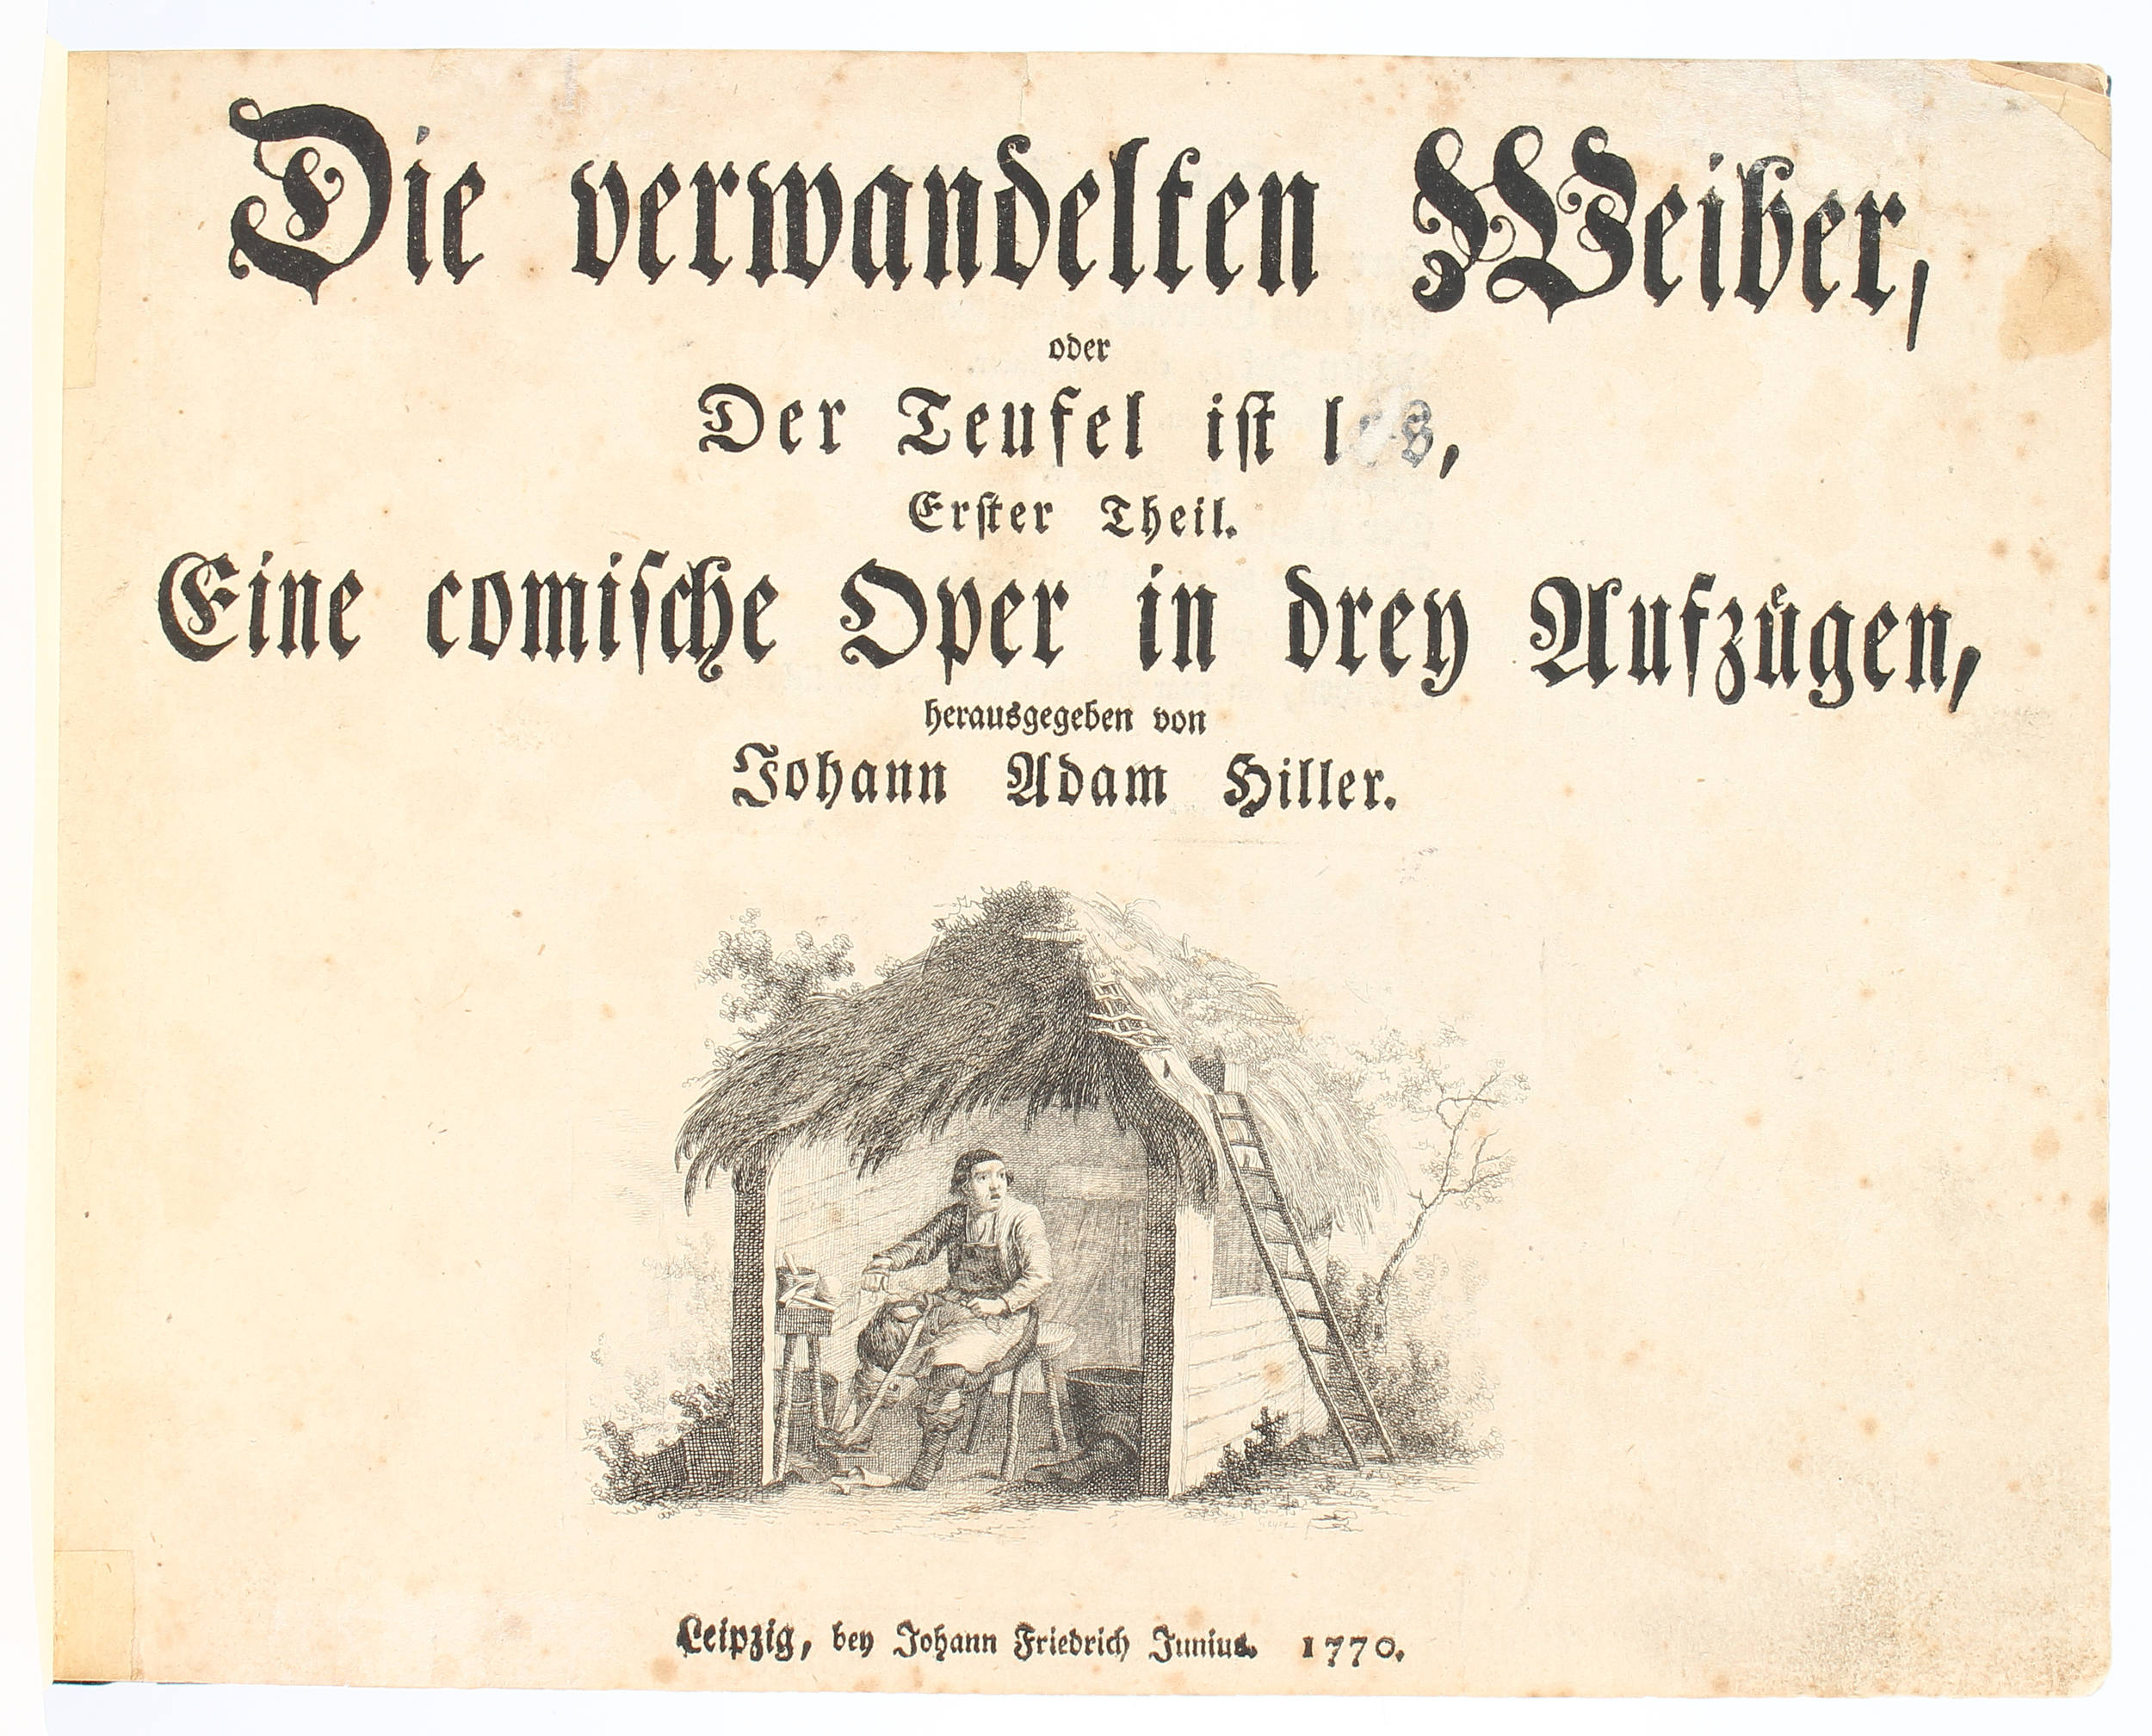 Die verwandelten Weiber,
oder
Der Teufel ist los,
Erster Theil.
Eine comische Oper in drey Aufzügen,
herausgegeben von
Johann Adam Hiller.
Leipzig, bey Johann Friedrich Junius. 1770.